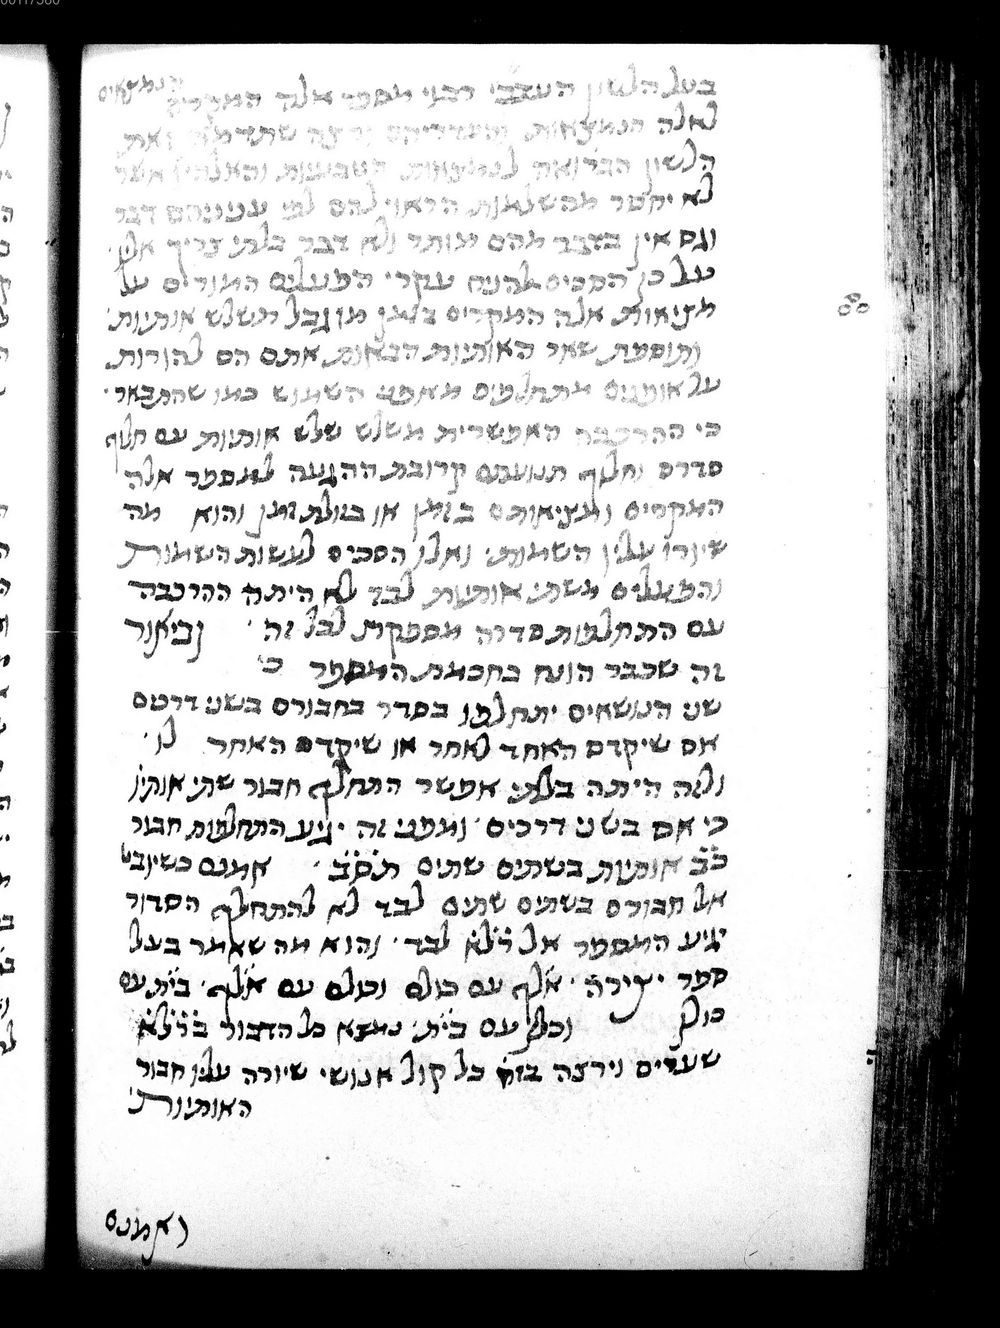 בעל הלשון העברי רבוי מספר אלה המקרים הנמצאים
לאלה הנמצאות
הלשון הבריאה לנמצאות הטבעיות והאלהי אשר
לא יחסר מהשלמות הראוי להם לפי עניניהם דבר
וגם אין בדבר מהם מותר ולא דבר בלתי צריך אליו
על כן הסכים להניח עקרי הפעלים המורים על
מציאות אלה המקרים בזמן מוגבל משלש אותיות
ותוספת שאר האותיות הבאות אתם הם להורות
על אופנים מתחלפים מאפני השמוש כמו שהתבאר
כי ההרכבה האפשרית משלש שלש אותיות עם חלוף
סדרם וחלוף תנועתם קרובת ההגעה למספר אלה
המקרים ומציאותם בזמן או בזולת זמן והוא מה
שיורו עליו השמות ואלו הסכים לעשות השמות
והפעלים משתי אותיות לבד לא היתה ההרכבה
עם התחלפות סדרה מספקת לכל זה וביאור
זה שכבר הונח בחכמת המספר כי
שני הנושאים יתחלפו בסדר בחבורם בשני דרכים
אם שיקדם האחד לאחר או שיקדם האחר לו
ולזה היתה בלתי אפשר התחלף חבור שתי אותיו
כי אם בשני דרכים ומפני זה יגיע התחלפות חבור
כ״ב אותיות בשתים שתים תס״ב אמנם כשיובט
אל חבורם בשתים שתים לבד לא להתחלף הסדור
יגיע המספר אל רל״א לבד והוא מה שאמר בעל
ספר יצירה אלף עם כולם וכולם עם אלף בית עם
כולן וכולן עם בית נמצא כל הדבור ברל״א
שערים וירצה בזה כל קול אנושי שיורה עליו חבור
האותיות
ואמנם